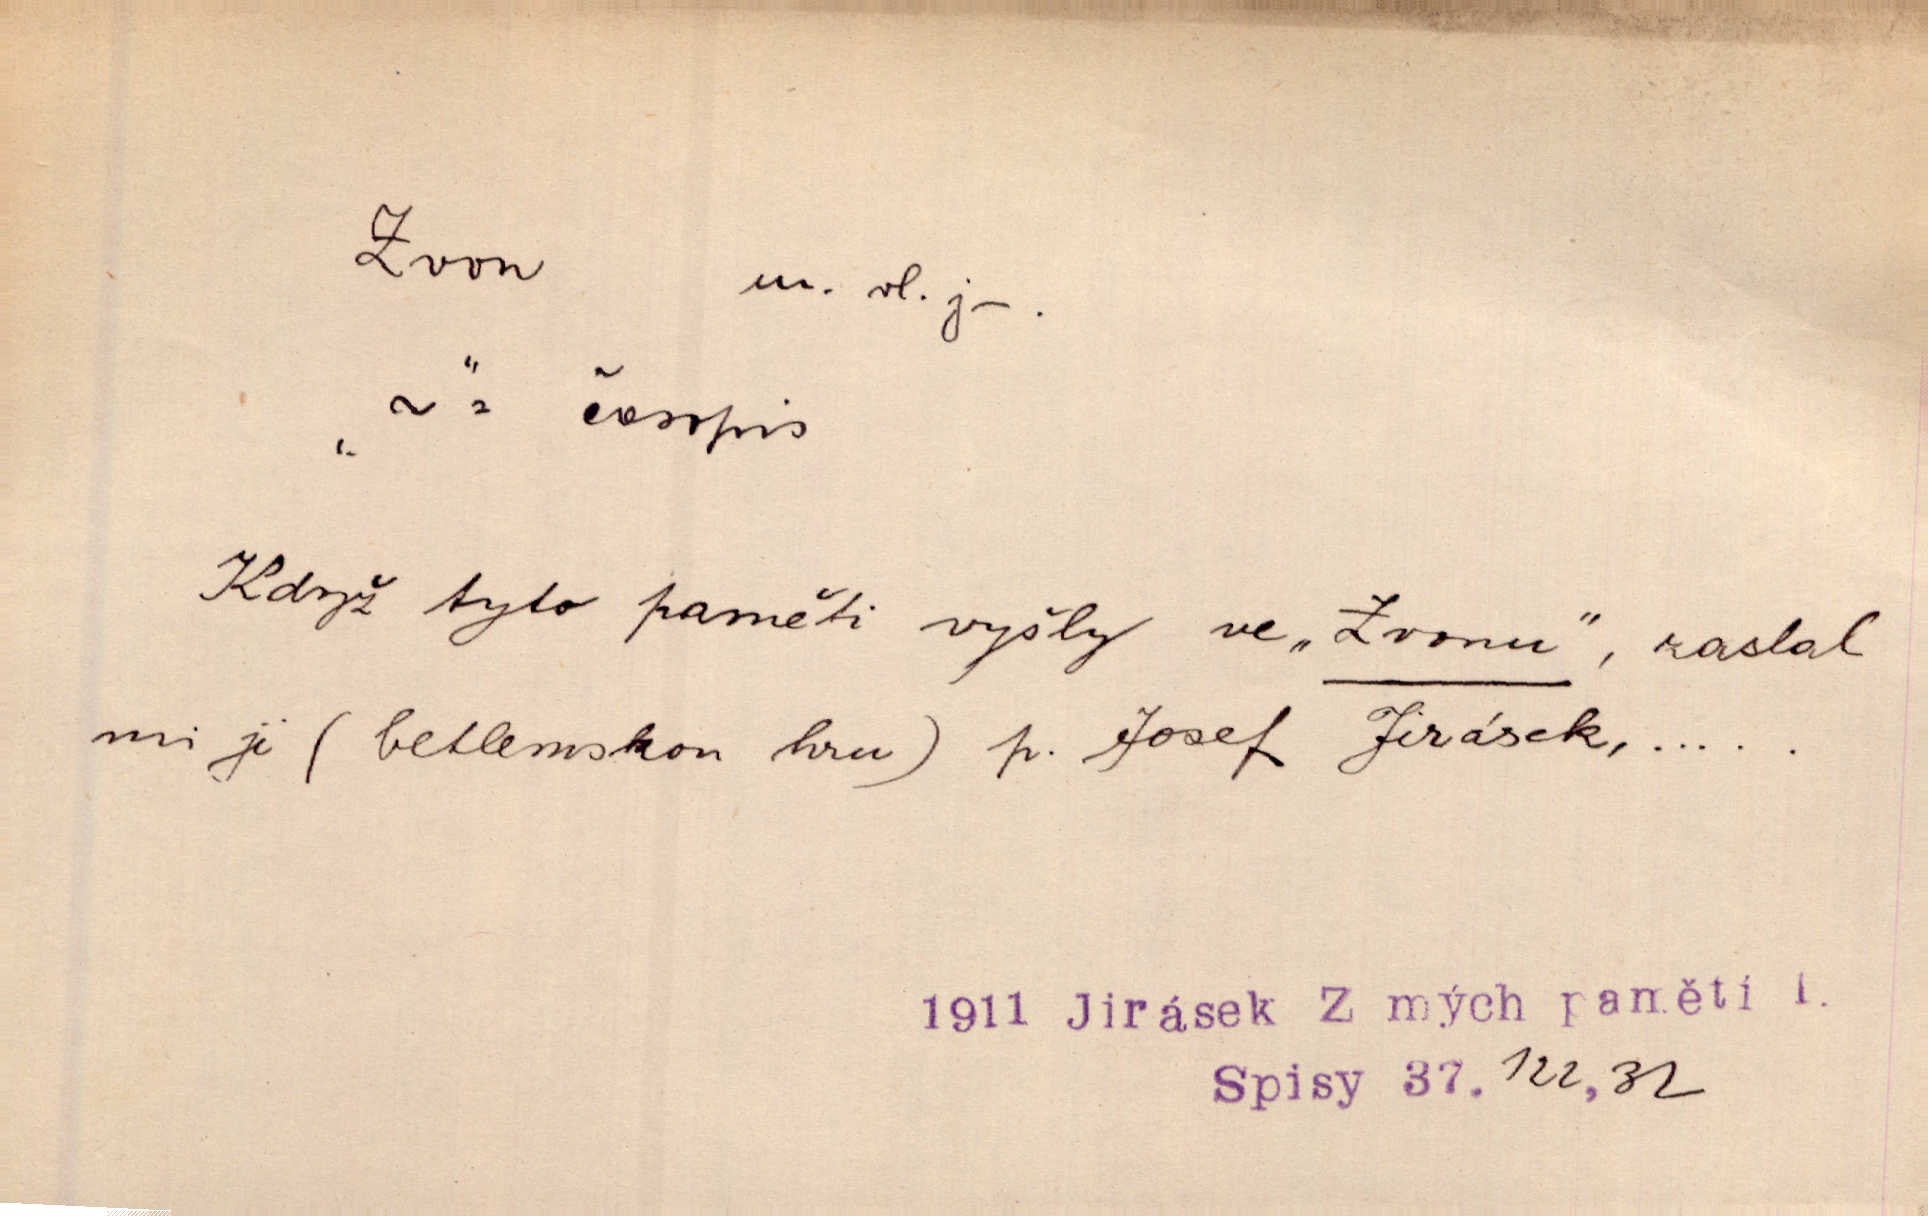 Zvon m. vl. j–.
„~“ = časopis
Když tyto paměti vyšly ve „Zvonu“, zaslal
mi ji (betlemskou hru) p. Josef Jirásek, .....
1911 Jirásek Z mých pamětí I.
Spisy 37. 122, 32